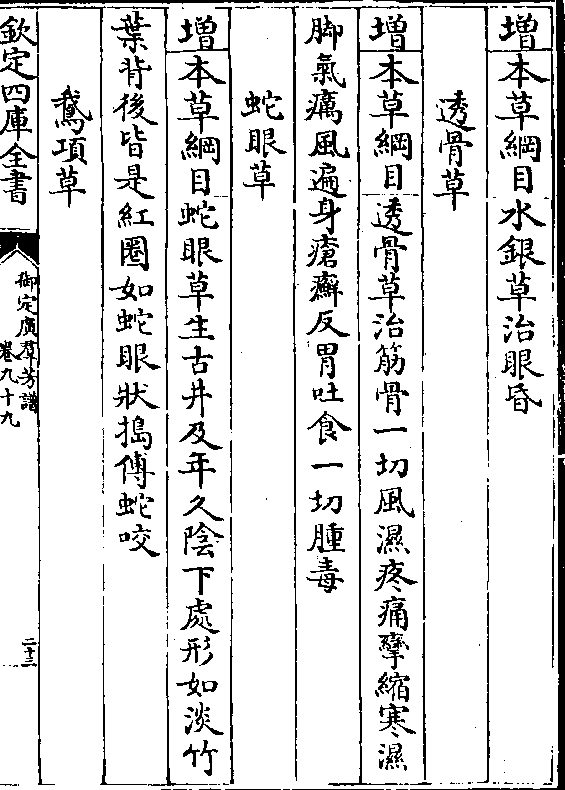 增本草綱目水銀草治眼昏
透骨草
增本草綱目透骨草治筋骨一切風濕疼痛攣縮寒濕
脚氣癘風遍身瘡癬反胃吐食一切腫毒
蛇眼草
增本草綱目蛇眼草生古井及年久陰下處形如淡竹
葉背後皆是紅圈如蛇眼狀搗傅蛇咬
鵞項草
欽定四庫全書
御定廣群芳譜
卷九十九
二十三